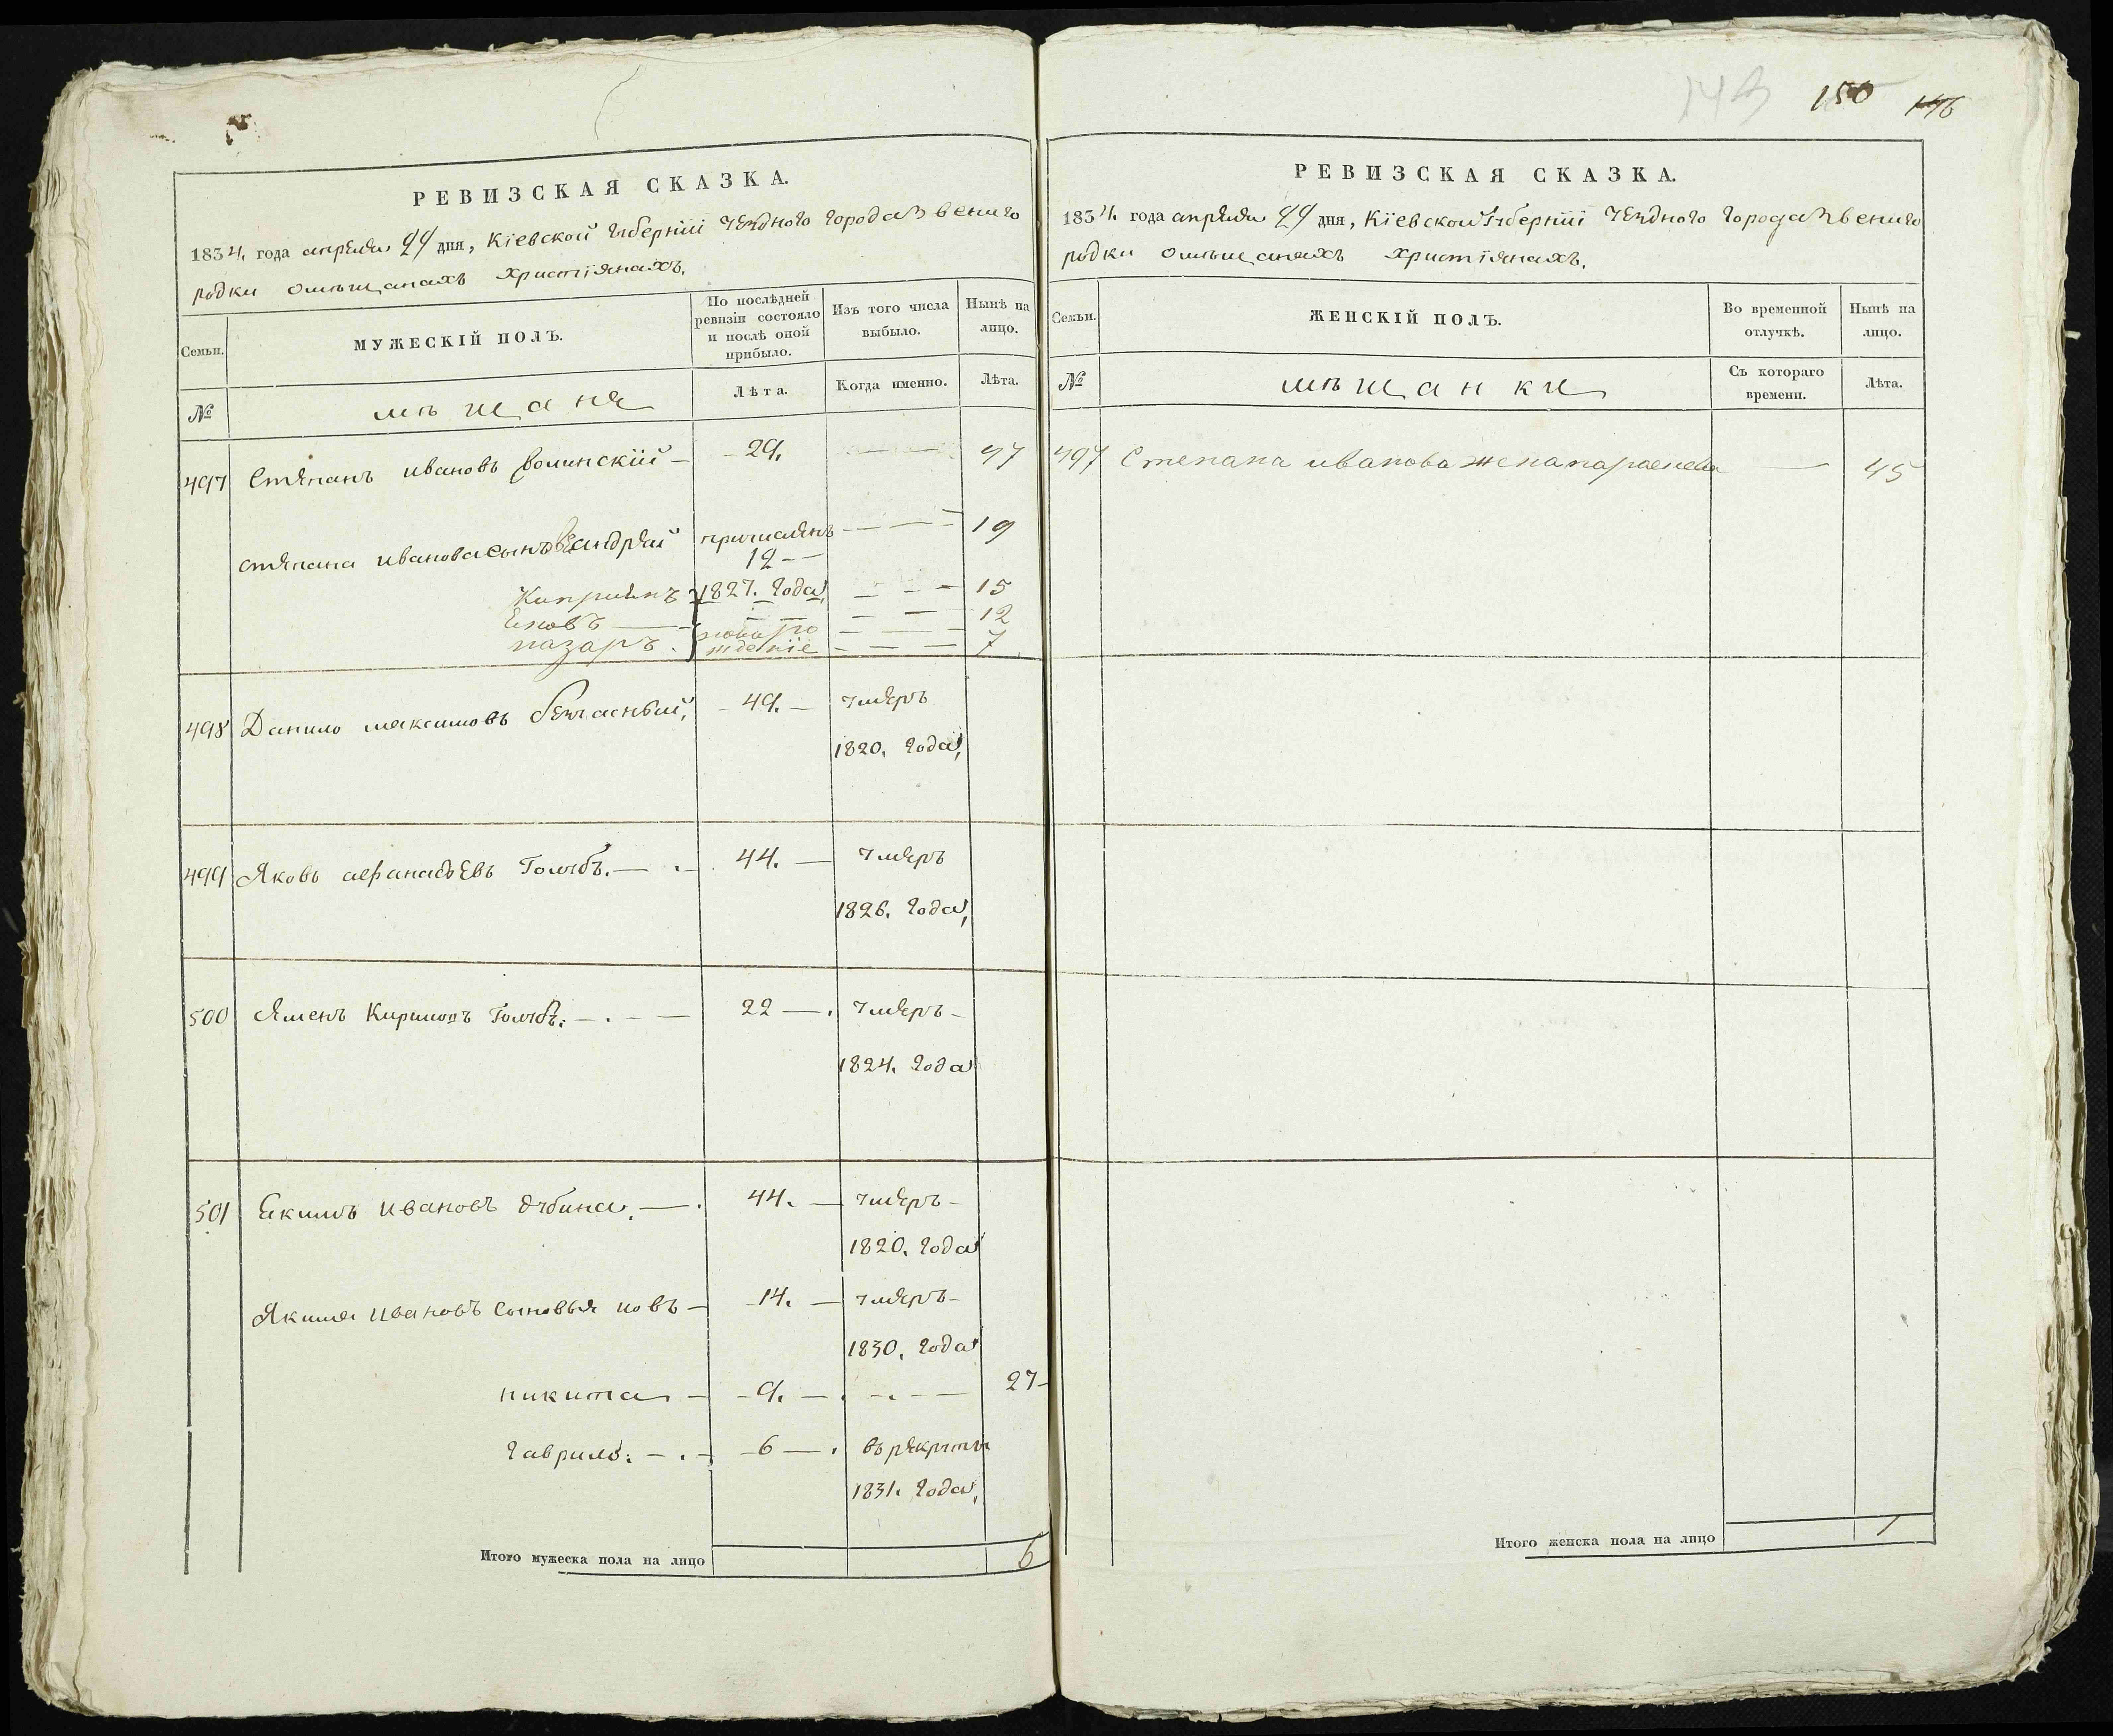 143 150 146
РЕВИЗСКАЯ СКАЗКА.
1834. года апреля 24 дня, Кіевской губерніи уезднаго города Звениго
родки о мѣщанахъ християнахъ.
Семьи.
МУЖЕСКІЙ ПОЛЪ.
По послѣдней
ревизіи состояло
и послѣ оной
прибыло.
Изъ того числа
выбыло.
Нынѣ на
лицо.
№
мѣщаня
Лѣта.
Когда именно.
Лѣта.
497 Степанъ Ивановъ Волинскій — 29. — — 47
Степана Иванова сыновья Андрей причисленъ — — — 19
12 — —
Киприянъ 1827. года, — — — 15
Іиовъ — — — 12
Назаръ. новорож
деніе — — — 7
498 Данило Максимовъ Безчасный, — 49. — умеръ
1820. года,
499 Яковъ Афанасьевъ Голубъ. — 44. — умеръ
1826. года,
500 Семенъ Кириловъ Голубъ. — 22 — умеръ —
1824. года
501 Екимъ Ивановъ Дубина. — 44. — умеръ —
1820. года
Якима Ивановъ сыновья Иовъ — 14. — умеръ —
1830. года
Никита — 9. — — — 27 —
Гаврило: — 6 — въ рекруты
1831. года,
Итого мужеска пола на лицо 6
РЕВИЗСКАЯ СКАЗКА.
1834. года апреля 24 дня, Кіевской губерніи уезднаго города Звениго
родки о мѣщанахъ християнахъ.
Семьи.
ЖЕНСКІЙ ПОЛЪ.
Во временной
отлучкѣ.
Нынѣ на
лицо.
№
мѣщанки
Съ котораго
времени.
Лѣта.
497 Степана Иванова жена Параскева — 45
Итого женска пола на лицо 1